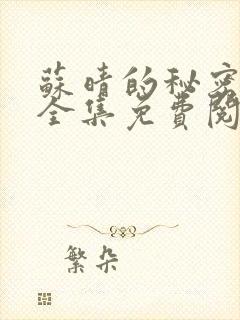 蘇晴的秘密
全集免費閱
繁朵